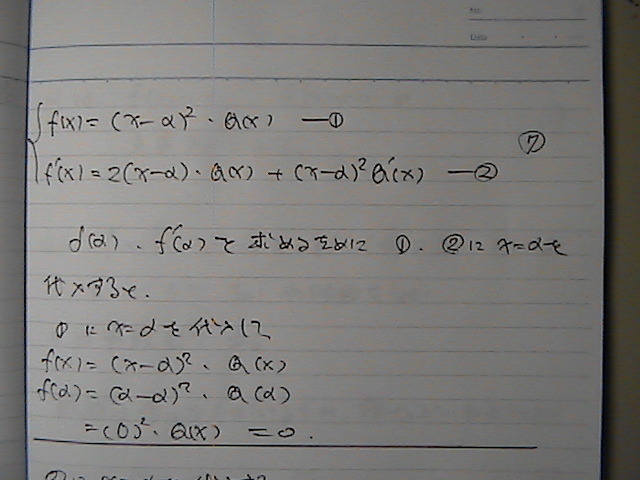 f(x) = (x-α)²・Q(x) ―①
f'(x) = 2(x-α)・Q(x) + (x-α)²Q'(x) ―②
⑦
f(α)、f'(α)を求めるためには ①、②に x=αを
代入すると、
①に x=αを代入して
f(x) = (x-α)²・Q(x)
f(α) = (α-α)²・Q(α)
= (0)²・Q(x) = 0.